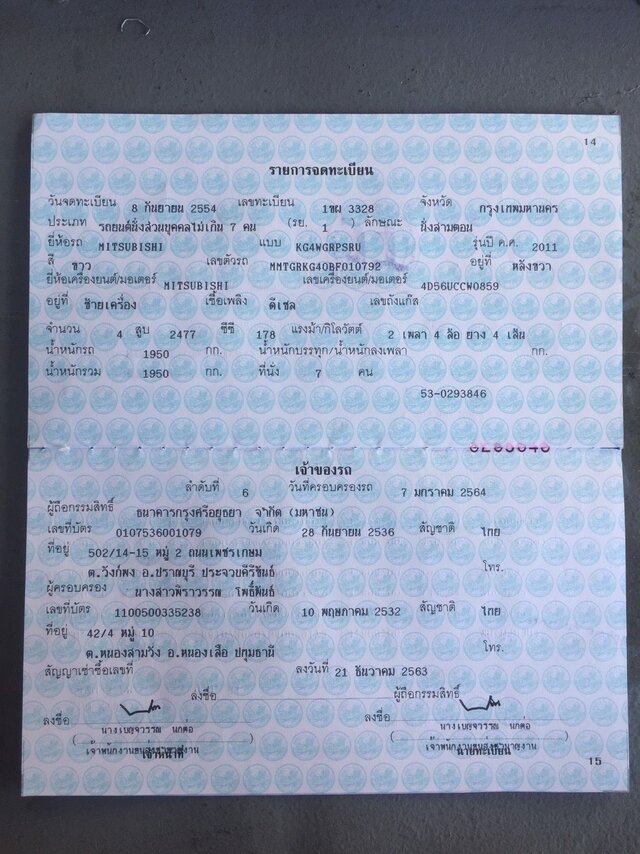 14
รายการจดทะเบียน
วันจดทะเบียน 8 กันยายน 2554 เลขทะเบียน 1ขผ 3328 จังหวัด กรุงเทพมหานคร
ประเภท รถยนต์นั่งส่วนบุคคลไม่เกิน 7 คน (รย. 1 ) ลักษณะ นั่งสามตอน
ยี่ห้อรถ MITSUBISHI แบบ KG4WGRPSRU รุ่นปี ค.ศ. 2011
สี ขาว เลขตัวรถ MMTGRKG40BF010792 อยู่ที่ หลังขวา
ยี่ห้อเครื่องยนต์/มอเตอร์ MITSUBISHI เลขเครื่องยนต์/มอเตอร์ 4D56UCCW0859
อยู่ที่ ซ้ายเครื่อง เชื้อเพลิง ดีเซล เลขถังแก๊ส
จำนวน 4 สูบ 2477 ซีซี 178 แรงม้า/กิโลวัตต์ 2 เพลา 4 ล้อ ยาง 4 เส้น
น้ำหนักรถ 1950 กก. น้ำหนักบรรทุก/น้ำหนักลงเพลา กก.
น้ำหนักรวม 1950 กก. ที่นั่ง 7 คน
53-0293846
เจ้าของรถ
ลำดับที่ 6 วันที่ครอบครองรถ 7 มกราคม 2564
ผู้ถือกรรมสิทธิ์ ธนาคารกรุงศรีอยุธยา จำกัด (มหาชน)
เลขที่บัตร 0107536001079 วันเกิด 28 กันยายน 2536 สัญชาติ ไทย
ที่อยู่ 502/14-15 หมู่ 2 ถนนเพชรเกษม
ต.วังก์พง อ.ปราณบุรี ประจวบคีรีขันธ์ โทร.
ผู้ครอบครอง นางสาวพิราวรรณ โพธิ์พันธ์
เลขที่บัตร 1100500335238 วันเกิด 10 พฤษภาคม 2532 สัญชาติ ไทย
ที่อยู่ 42/4 หมู่ 10
ต.หนองสามวัง อ.หนองเสือ ปทุมธานี โทร.
สัญญาเช่าซื้อเลขที่ ลงวันที่ 21 ธันวาคม 2563
ลงชื่อ ผู้ถือกรรมสิทธิ์
ลงชื่อ ลงชื่อ
นางเบญจวรรณ นกต่อ นางเบญจวรรณ นกต่อ
เจ้าพนักงานขนส่งชำนาญงาน เจ้าพนักงานขนส่งชำนาญงาน
เจ้าหน้าที่ นายทะเบียน
15